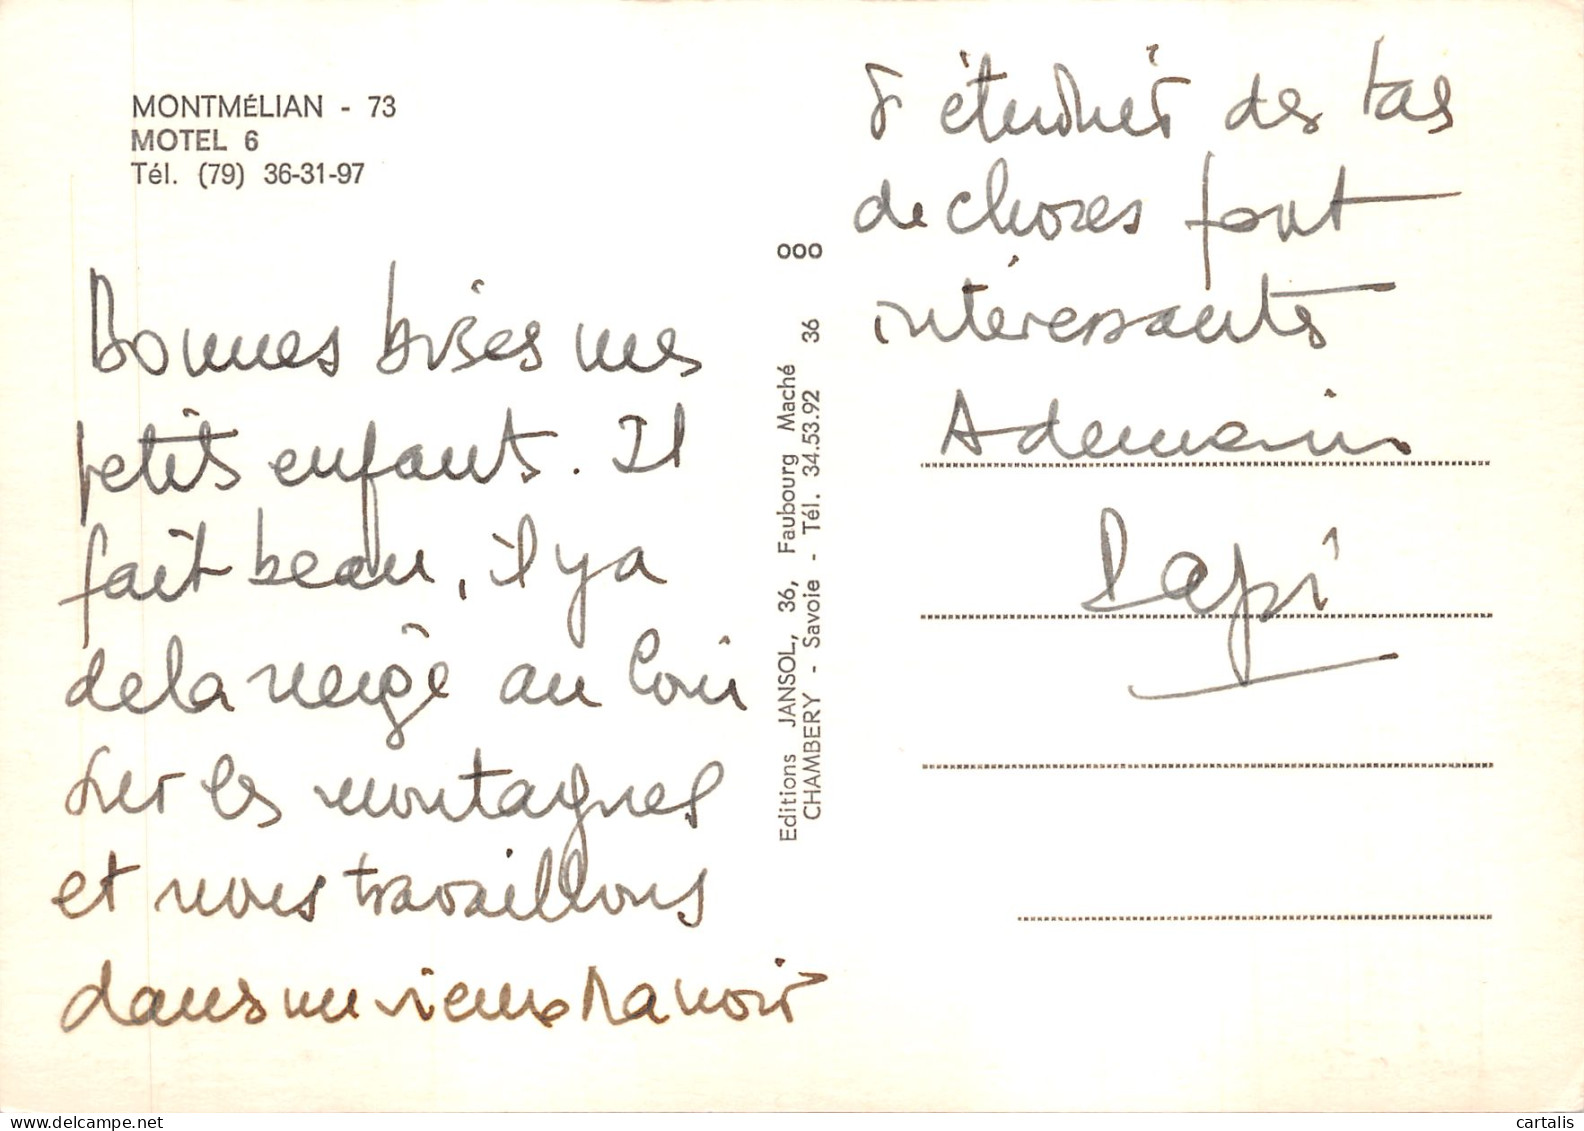 MONTMÉLIAN - 73
MOTEL 6
Tél. (79) 36-31-97
Bonnes bises mes
petits enfants. Il
fait beau, il y a
de la neige au loin
sur les montagnes
et nous travaillons
dans un vieux manoir
à étudier des tas
de choses fort
intéressantes
A demain
Papi
ooo
Editions JANSOL, 36, Faubourg Maché 36
CHAMBERY - Savoie - Tél. 34.53.92
cartalis